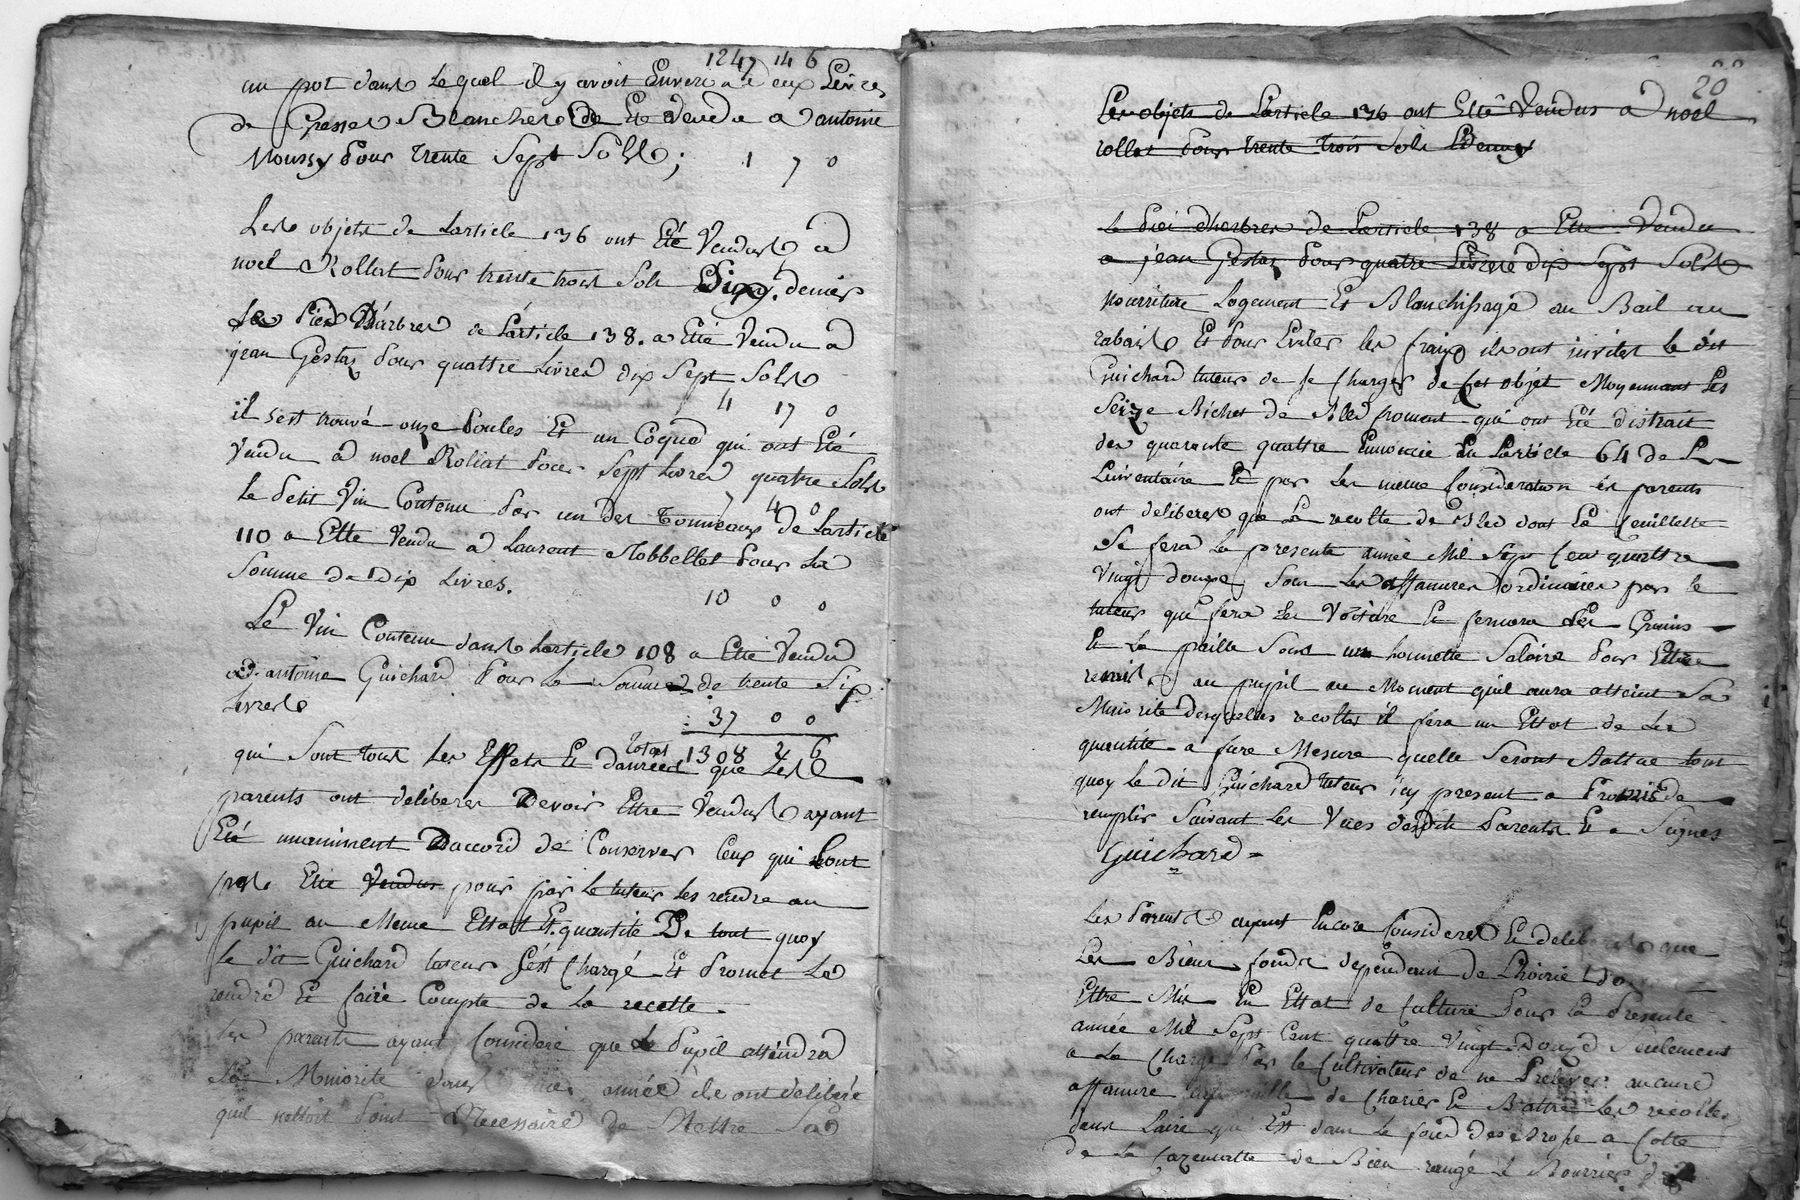 1247 14 6
un pot dans Lequel il y avoit Environ deux Livres
de Gresses Blanches Ete Vendu a antoine
Moussy pour trente Sept Sols ; 1 7 0
Les objets de Larticle 136 ont Eté Vendus a
noel Rollat pour trente trois Sols Six deniers
Le Pied D'arbres de Larticle 138. a Etté Vendu a
jean Gestas pour quattre Livres dix Sept Sols
4 17 0
il s'est trouvé onze Poules Et un Coque qui ont Eté
Vendu a noel Rollat pour Sept Livres quatre Sols
7 4 0
Le petit Vin Contenu par un des Tonneaux de Larticle
110 a Etté Vendu a Laurent Robbellet pour La
Somme de Dix Livres.
10 0 0
Le Vin Contenu dans Larticle 108 a Etté Vendu
a antoine Guichard pour La Somme de trente Six
Livres
37 0 0
total 1308 2 6
qui Sont tous Les Effets Et danrées que Les
parents ont deliberer Devoir Ettre Vendus ayant
Eté unanimment Daccord de Conserver Ceux qui Sont
pas Etté Vendus pour par Le tuteur Les rendre au
pupil au Meme Ettat Et quantité De tout quoy
Le dit Guichard tuteur s'est Chargé Et Promet Les
rendre Et faire Compte de La recette.
Les parents ayant Considéré que Le Pupil attéindra
Sa Minorité dans année ils ont deliberé
quil nettoit point Necessaire de Mettre Sa
20
Les objets de Larticle 136 ont Etté Vendus a noel
rollat pour trente trois Sols
Le Piéi dharbres de Larticle 138 a Etté Vendu
a jean Gestas pour quatre Livres dix Sept Sols
Nourriture Logement Et Blanchissage au Bail au
rabais Et pour Eviter Les fraix ils ont inviter le dit
Guichard tuteur de se Charger de Cet objet Moyennant Les
Seize Bichet de Bled froment qui ont Eté distrait
des quarante quattre Ennoncé En Larticle 64 de Le
Linventaire Et par Les meme Consideration Les parents
ont deliberer que La recolte de Bled dont La Ceuillette
Se fera La presente année Mil Sept Cent quattre
Vingt douze Sous Les affanures ordinaires par le
tuteur qui fera Les Voiture Et fermera Les Grains
Et La paille Sous un honnette Salaire pour Ettre
remis au pupil au Moment quil aura atteint Sa
Minorité desquelles recoltes il fera un Ettat de Les
quantité a fure Mesure quelle Seront Battue tout
quoy Le dit Guichard tuteur icy present a Promis de
remplir Suivant Les Vues desdits Parents Et a Signer
Guichard =
Les Parents ayant Encore Considerer Et deliberer que
Les Biens fonds dépendant de L'hoirie
Ettre Mis En Ettat de Culture pour La Presente
année Mil Sept Cent quattre Vingt Douze Seulement
a La Charge Par le Cultivateur de ne Prelever aucune
affanure de Charier Et Battre Les recoltes
dans Laire qui Est dans Le fond a Cotte
de La de Bien rangé Le